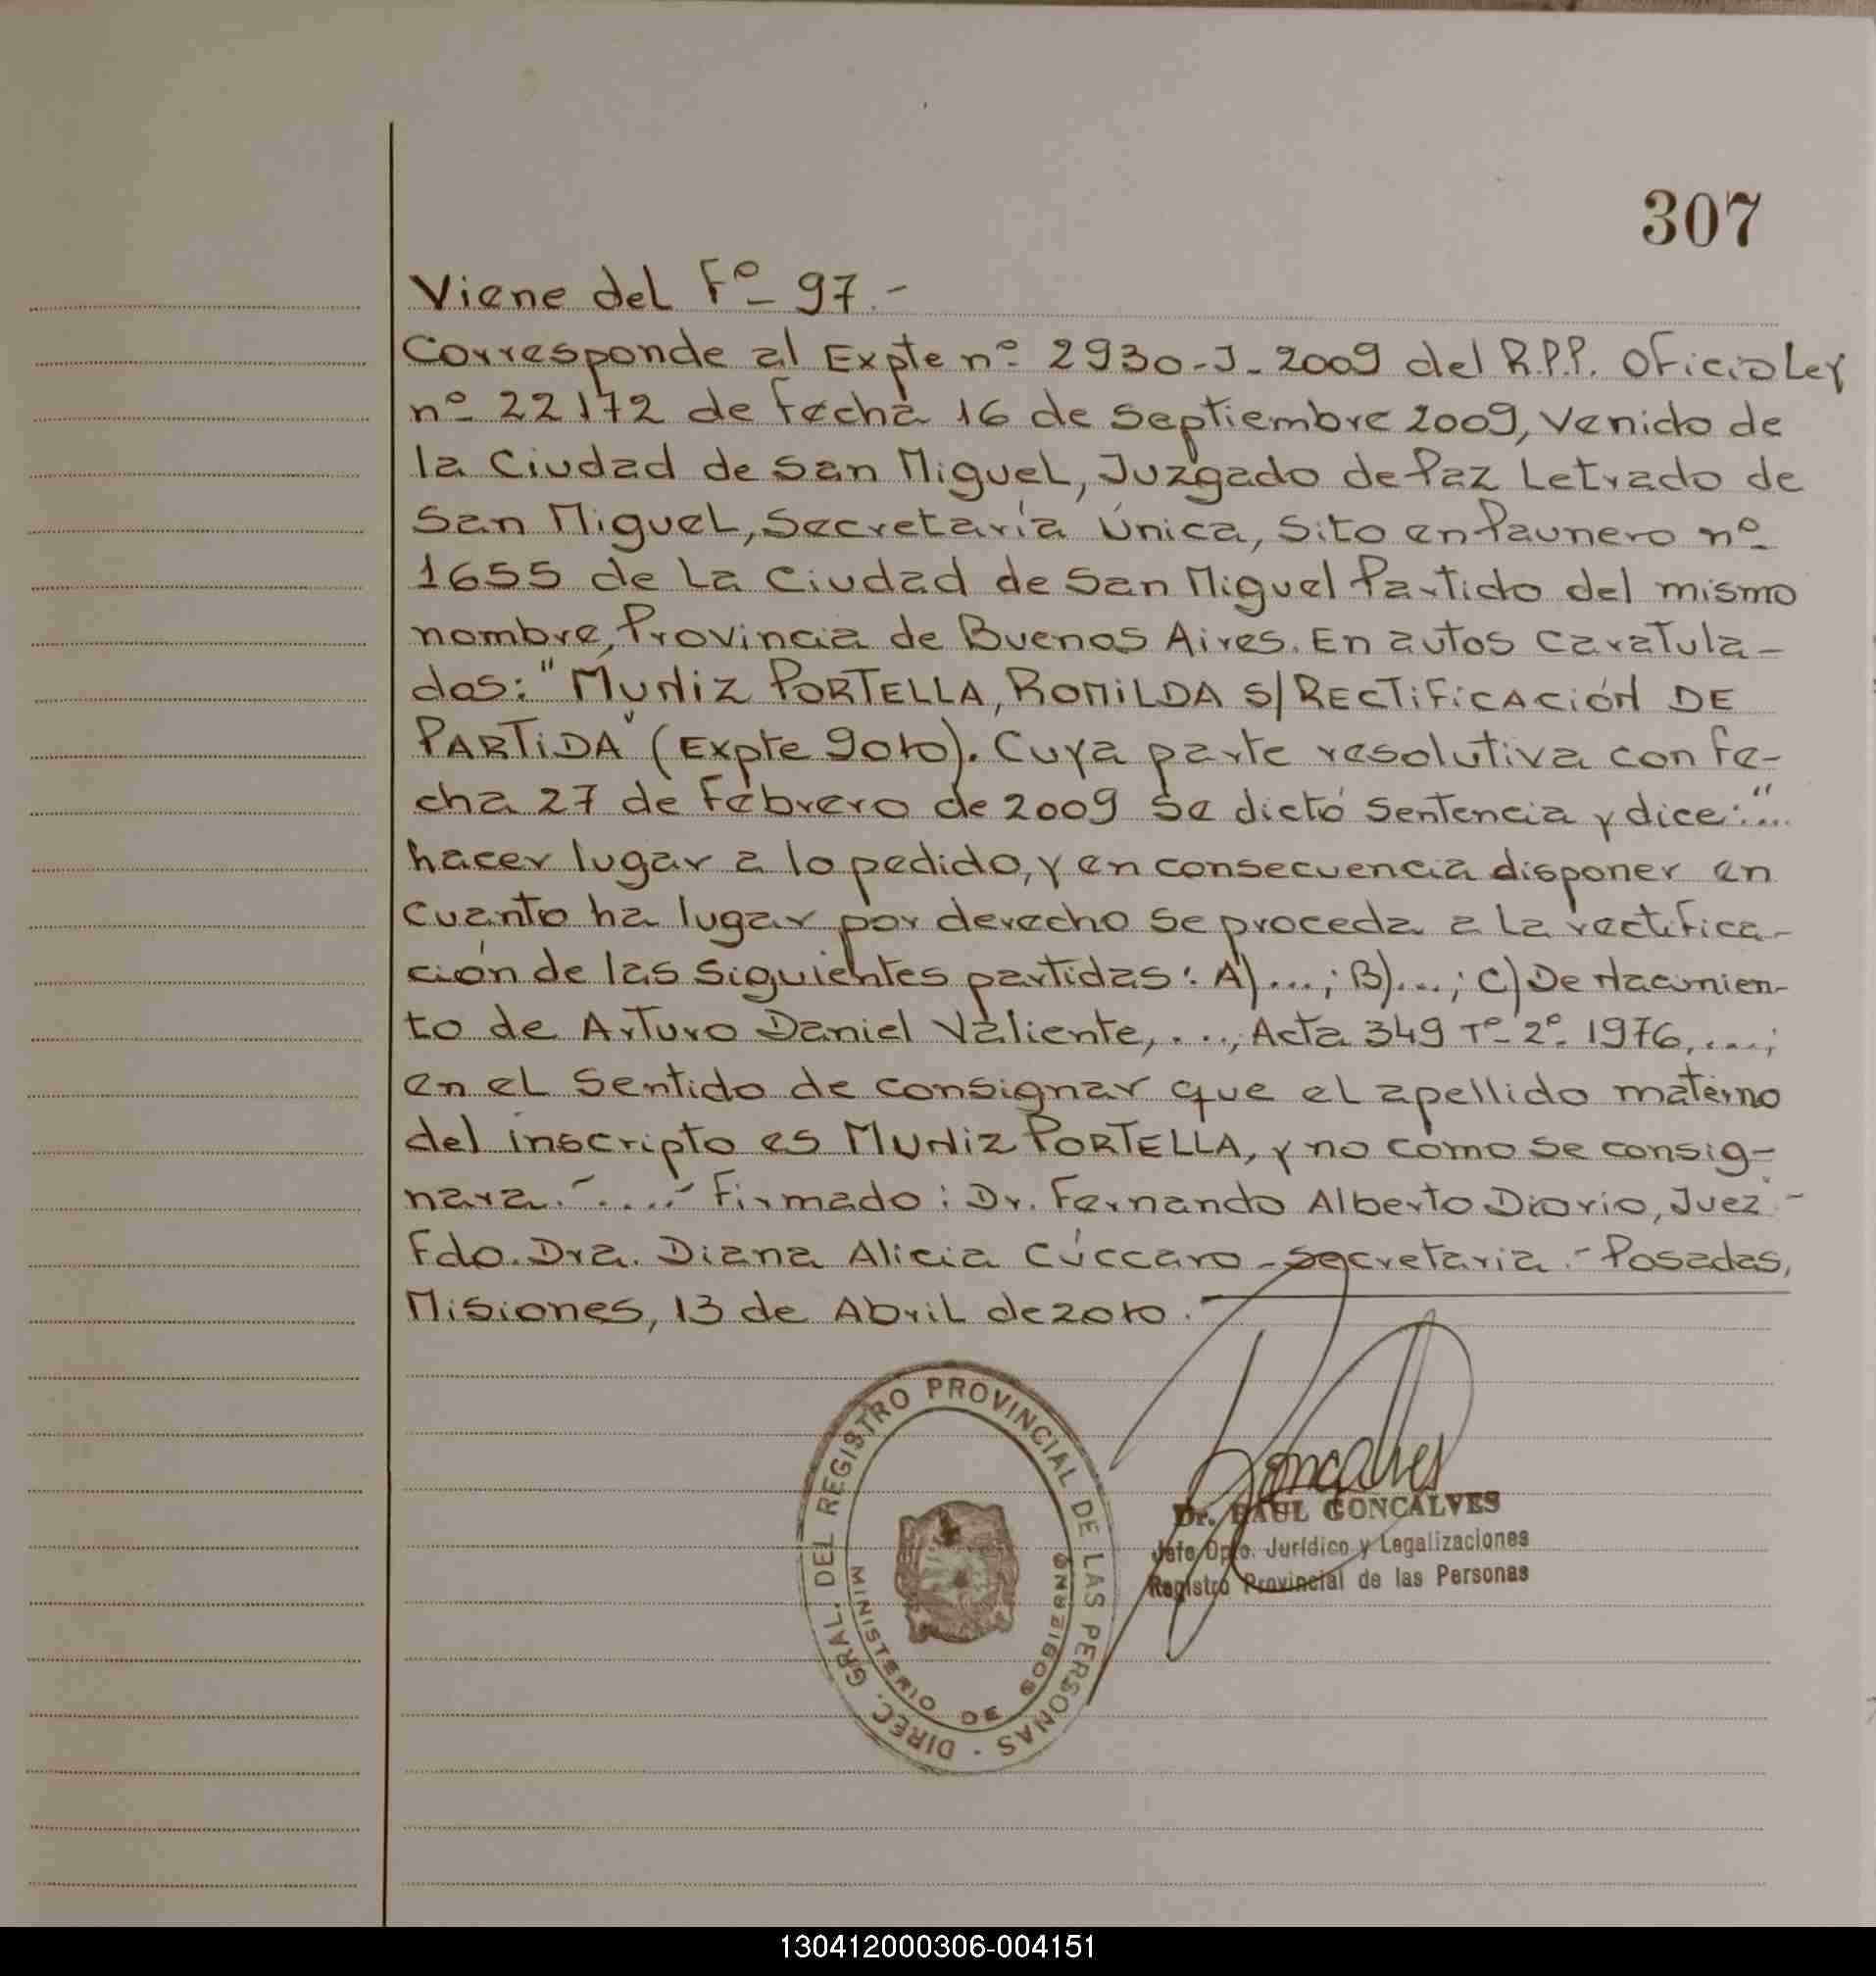 307
Viene del Fº 97.-
Corresponde al Expte nº 2930-J-2009 del R.P.P. Oficio Ley
nº 22172 de fecha 16 de Septiembre 2009, venido de
la Ciudad de San Miguel, Juzgado de Paz Letrado de
San Miguel, Secretaría Única, Sito en Paunero nº
1655 de La Ciudad de San Miguel Partido del mismo
nombre, Provincia de Buenos Aires. En autos caratula-
dos: "MUNIZ PORTELLA, ROMILDA S/ RECTIFICACIÓN DE
PARTIDA" (Expte 9010). Cuya parte resolutiva con fe-
cha 27 de Febrero de 2009 se dictó Sentencia y dice: "...
hacer lugar a lo pedido, y en consecuencia disponer en
cuanto ha lugar por derecho se proceda a la rectifica-
ción de las siguientes partidas: A)...; B)...; C) De Nacimien-
to de Arturo Daniel Valiente, ..., Acta 349 Tº 2º 1976, ....;
en el Sentido de consignar que el apellido materno
del inscripto es MUNIZ PORTELLA, y no como se consig-
nara.-....-" Firmado: Dr. Fernando Alberto Diorio, Juez.-
Fdo. Dra. Diana Alicia Cúccaro - Secretaria.- Posadas,
Misiones, 13 de Abril de 2010.-
DIREC. GRAL. DEL REGISTRO PROVINCIAL DE LAS PERSONAS -
MINISTERIO DE GOBIERNO
Goncalves
Dr. RAUL GONCALVES
Jefe Dpto. Jurídico y Legalizaciones
Registro Provincial de las Personas
130412000306-004151